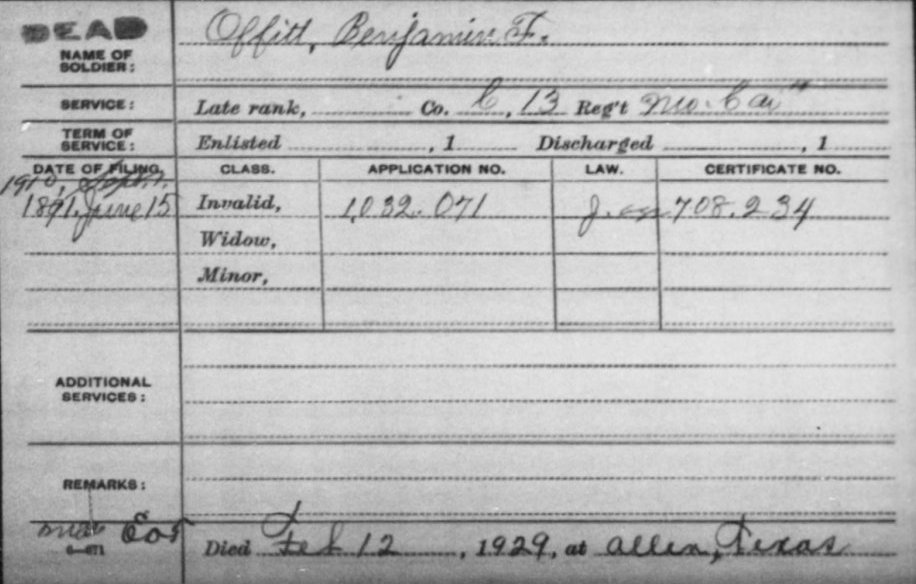 DEAD
NAME OF SOLDIER: Offitt, Benjamin F.
SERVICE: Late rank, Co. C, 13 Reg't Mo. Cav
TERM OF SERVICE: Enlisted , 1 Discharged , 1
DATE OF FILING. CLASS. APPLICATION NO. LAW. CERTIFICATE NO.
1910, Sept.
1891. June 15 Invalid, 1032.071 J. 708.234
Widow,
Minor,
ADDITIONAL SERVICES:
REMARKS:
Died Feb 12, 1929, at Allen, Texas